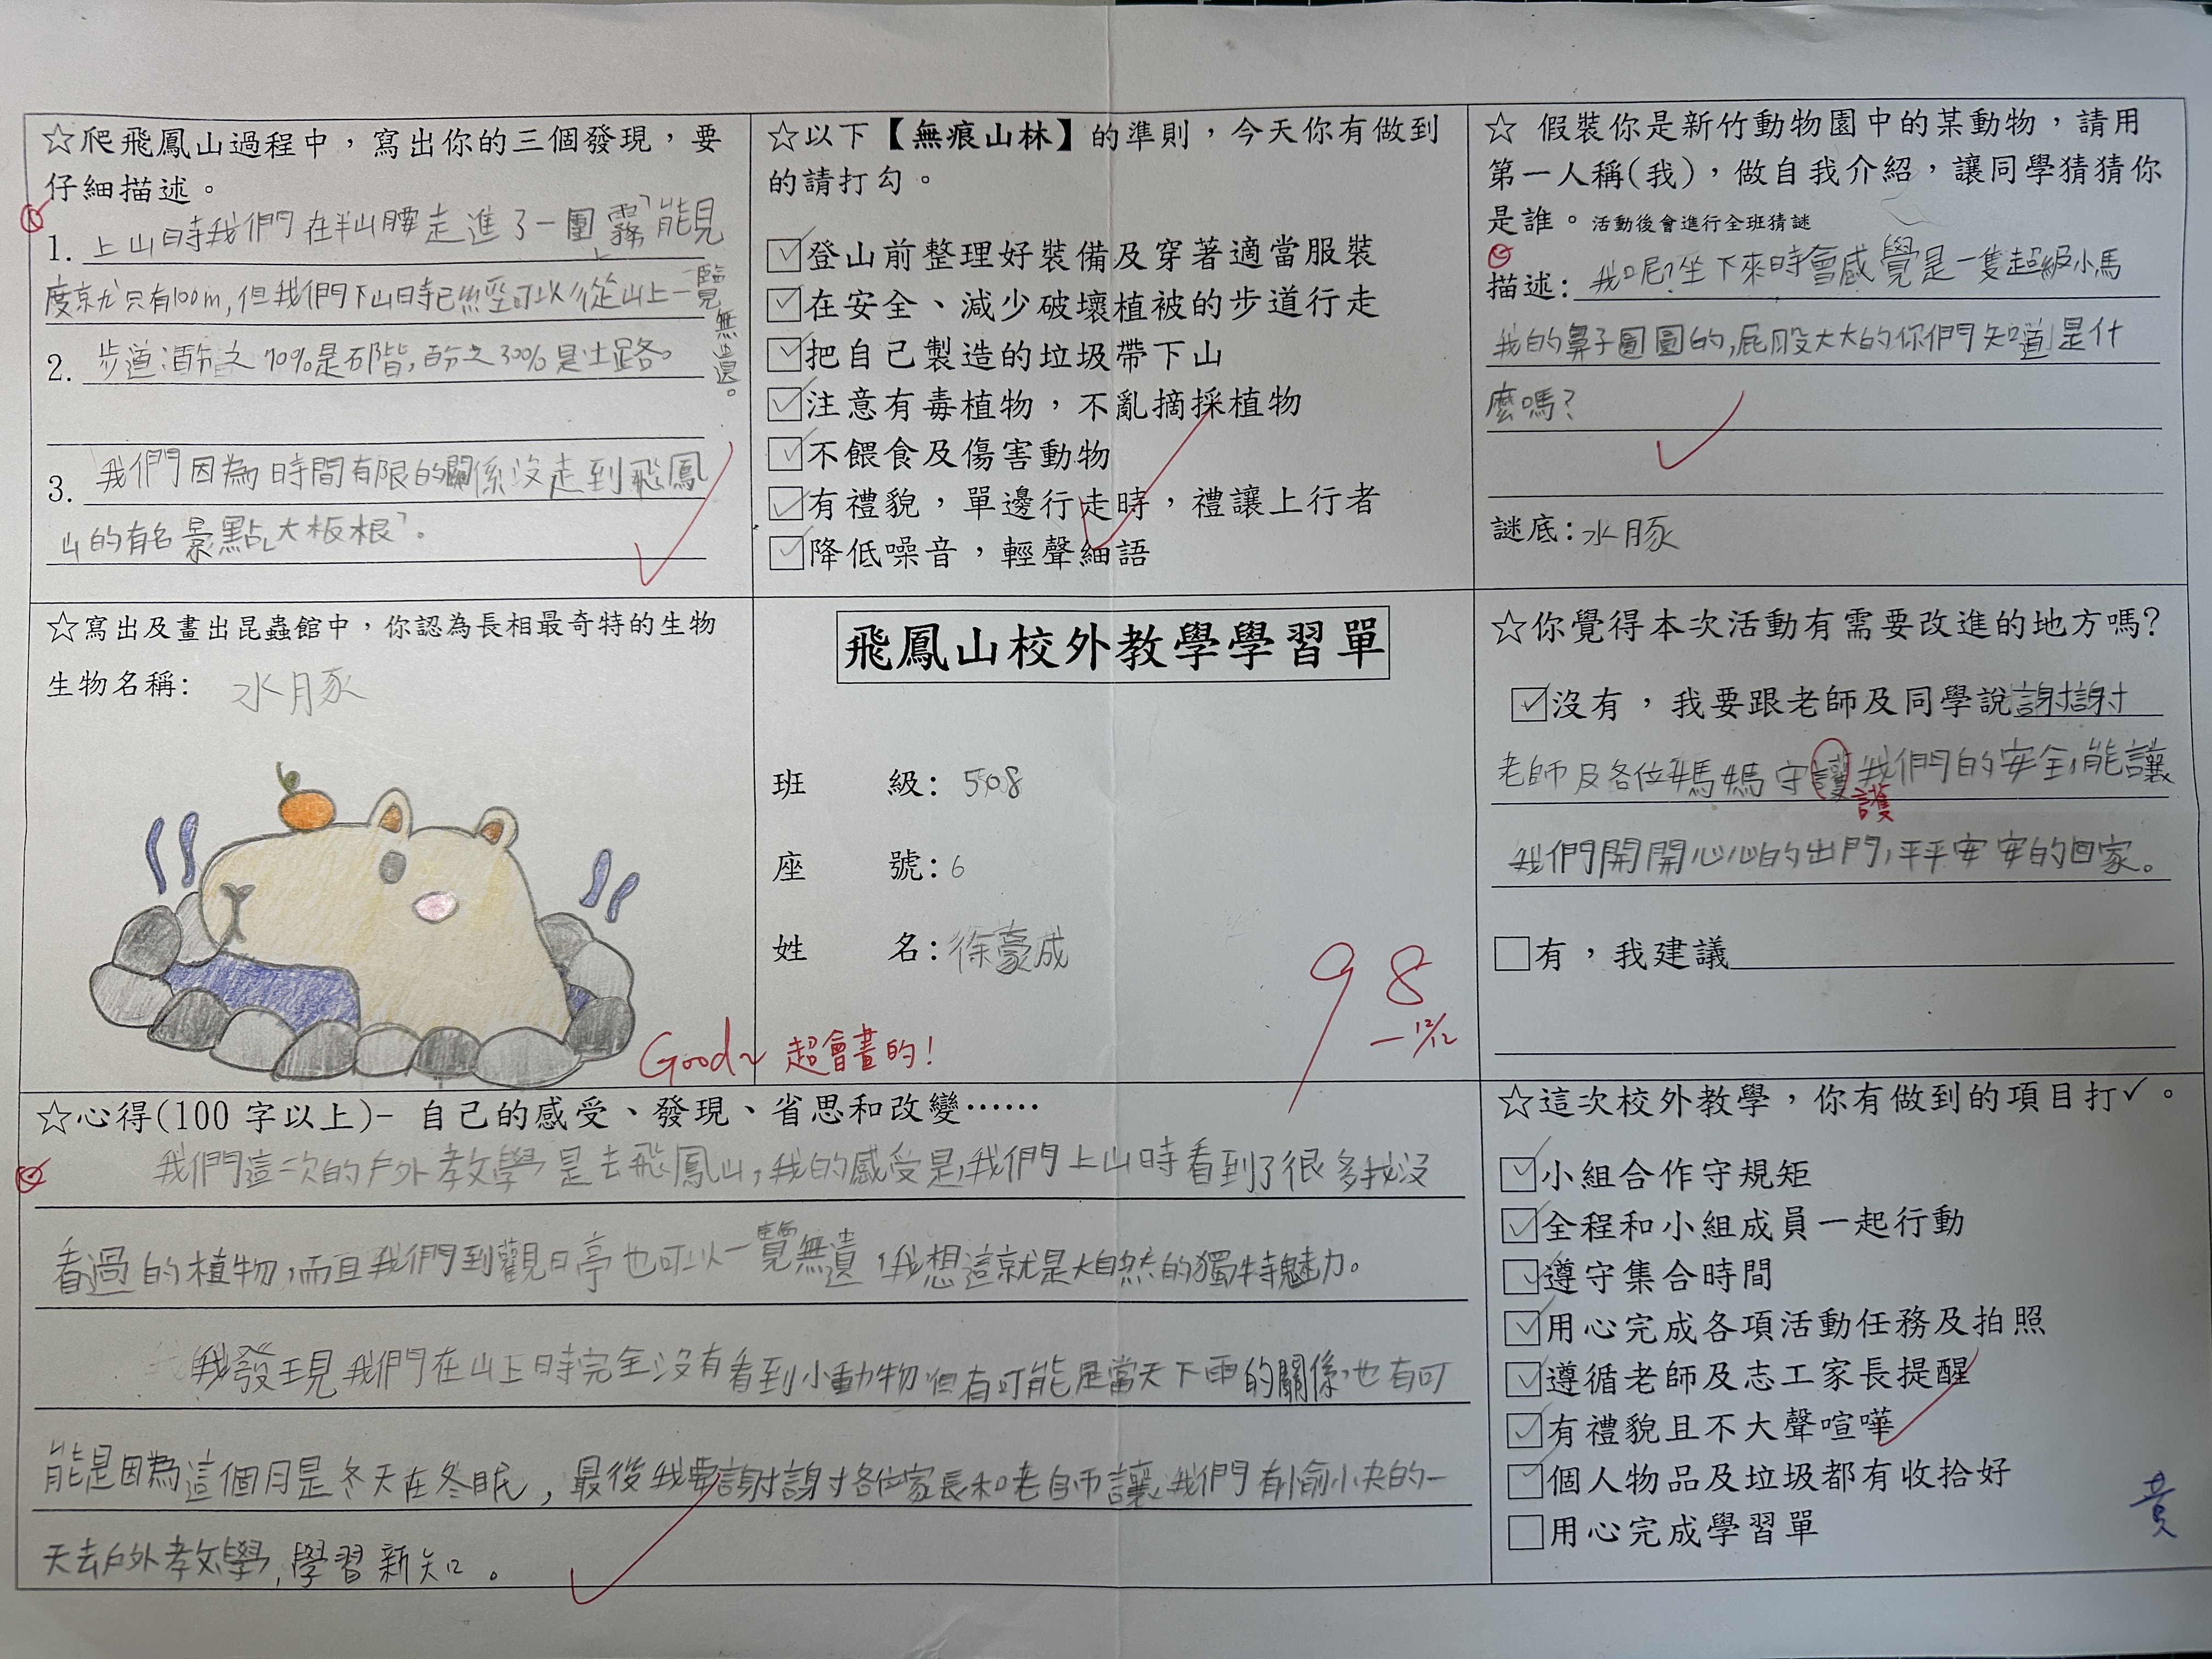 ☆爬飛鳳山過程中，寫出你的三個發現，要
仔細描述。
1. 上山時我們在半山腰走進了一團「霧」能見
度就只有100m，但我們下山時已經可以從山上一覽無遺。
2. 步道：百分之70%是石階，百分之30%是土路。
3. 我們因為時間有限的關係沒走到飛鳳
山的有名景點「大板根」。
☆以下【無痕山林】的準則，今天你有做到
的請打勾。
☑登山前整理好裝備及穿著適當服裝
☑在安全、減少破壞植被的步道行走
☑把自己製造的垃圾帶下山
☑注意有毒植物，不亂摘採植物
☑不餵食及傷害動物
☑有禮貌，單邊行走時，禮讓上行者
☑降低噪音，輕聲細語
☆ 假裝你是新竹動物園中的某動物，請用
第一人稱(我)，做自我介紹，讓同學猜猜你
是誰。活動後會進行全班猜謎
描述：我呢?坐下來時會感覺是一隻超級小馬
我的鼻子圓圓的，屁股大大的你們知道是什
麼嗎?
謎底：水豚
☆寫出及畫出昆蟲館中，你認為長相最奇特的生物
生物名稱： 水豚
Good~ 超會畫的!
飛鳳山校外教學學習單
班 級：508
座 號：6
姓 名：徐豪成
98
12/12
☆你覺得本次活動有需要改進的地方嗎?
☑沒有，我要跟老師及同學說謝謝
老師及各位媽媽守護我們的安全，能讓
護
我們開開心心的出門，平平安安的回家。
□有，我建議
☆心得(100字以上)- 自己的感受、發現、省思和改變……
我們這次的戶外教學是去飛鳳山，我的感受是，我們上山時看到了很多我沒
看過的植物，而且我們到觀日亭也可以一覽無遺，我想這就是大自然的獨特魅力。
我發現我們在山上時完全沒有看到小動物但有可能是當天下雨的關係，也有可
能是因為這個月是冬天在冬眠，最後我要謝謝各位家長和老師讓我們有愉快的一
天去戶外教學，學習新知。
☆這次校外教學，你有做到的項目打✓。
☑小組合作守規矩
☑全程和小組成員一起行動
☑遵守集合時間
☑用心完成各項活動任務及拍照
☑遵循老師及志工家長提醒
☑有禮貌且不大聲喧嘩
☑個人物品及垃圾都有收拾好
□用心完成學習單